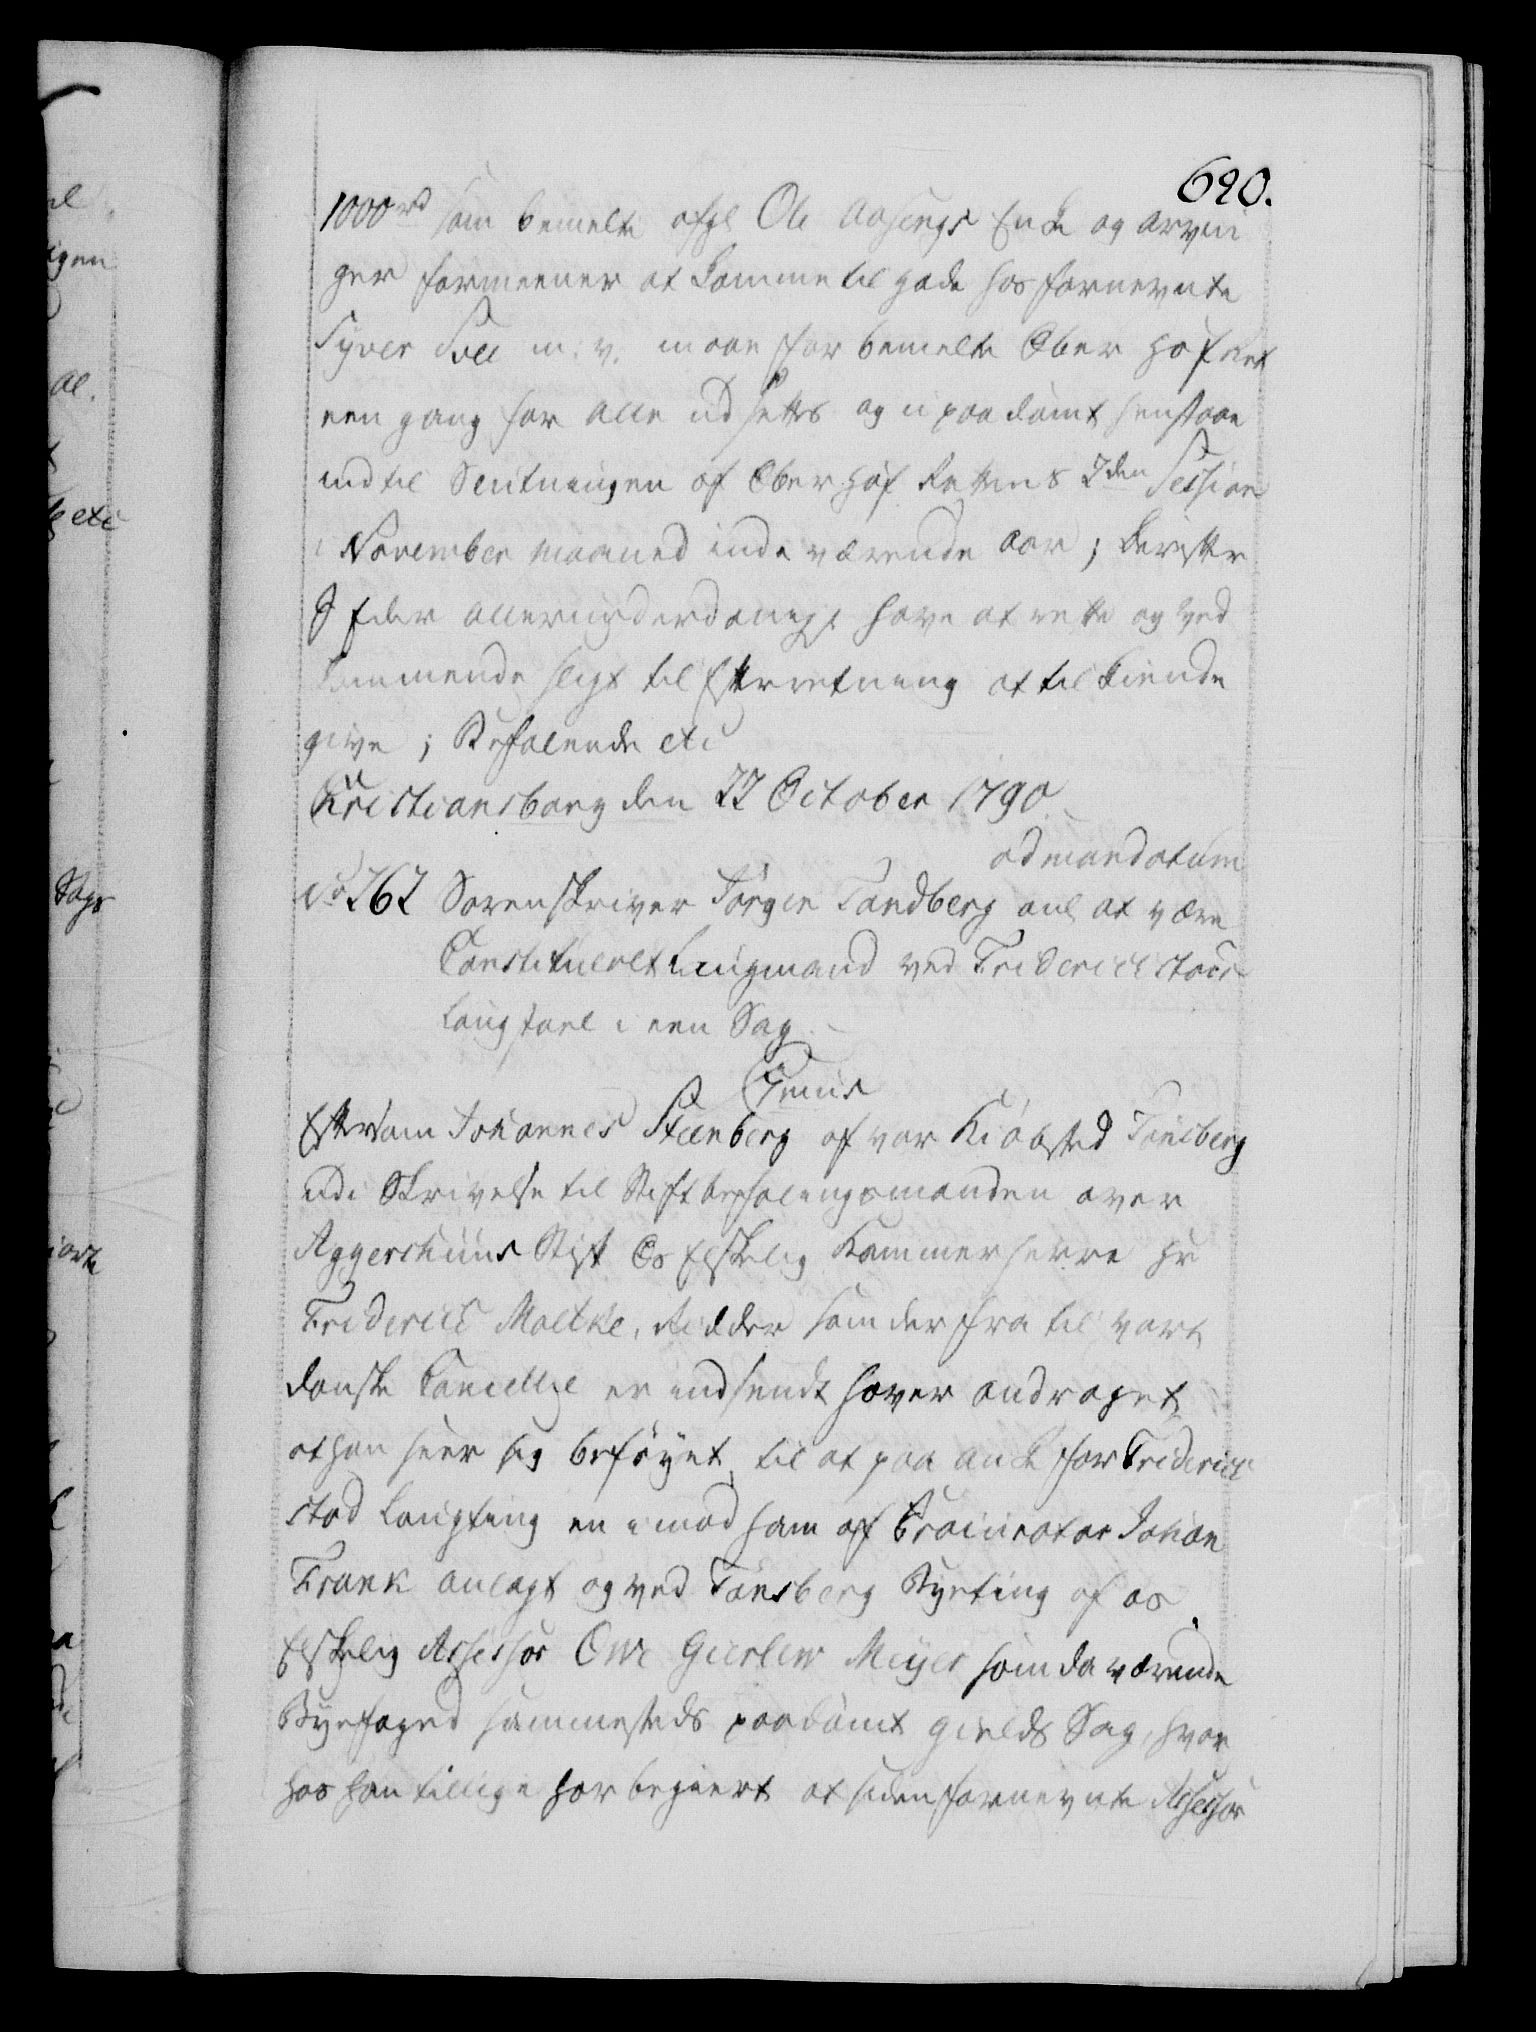 690.
1000 rd som bemelte afgl Ole Aasengs Enke og Arvin
ger formeener at komme til gode hos fornevnte
Syver Svee m: v. maae for bemelte Ober Hof Ret
een gang for alle udsettes og upaadømt henstaae
indtil Slutningen af Ober Hof Rettens 2den Session
i November Maaned inde værende Aar; derefter
I Eder allerunderdanigst have at rette og ved
kommende sligt til Efterretning at tilkiende
give; Befalende etc
Christiansborg den 22 October 1790.
ad mandatum
No 262 Sorenskriver Jørgen Tandberg anl at være
Constitueret Laugmand ved Friderichstads
Laugstoel i een Sag.
Gunius
Eftersom Johannes Steenberg af vor Kiøbsted Tønsberg
udi Skrivelse til Stiftbefalingsmanden over
Aggershuus Stift Os Elskelig Kammerherre Hr
Friderich Moltke, Ridder som derfra til vort
danske Cancellie er indsendt haver andraget,
at han seer sig beføyet til at paa anke for Friderich
stad Laugting en imod ham af Procurator Johan
Frank anlagt og ved Tønsberg Byeting af os
Elskelig Assessor Ove Gierløw Meyer som da værende
Byefoged sammesteds paadømt Gields Sag, hvor
hos han tillige har begiert at siden fornevnte Assessor